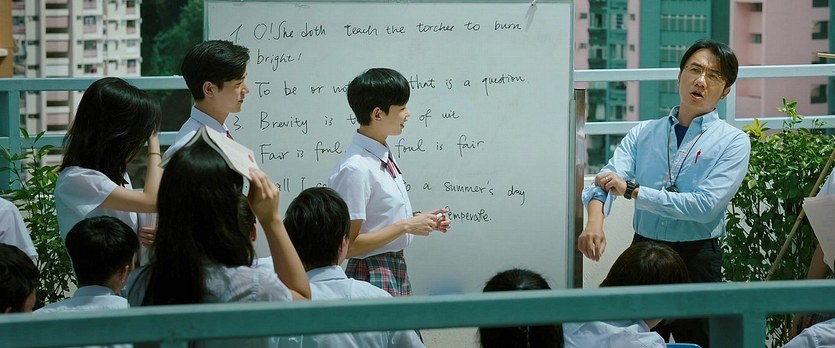 1. O! She doth teach the torches to burn
bright!
To be or that is a question
3. Brevity is of wit
Fair is foul foul is fair
a summer's day
temperate.